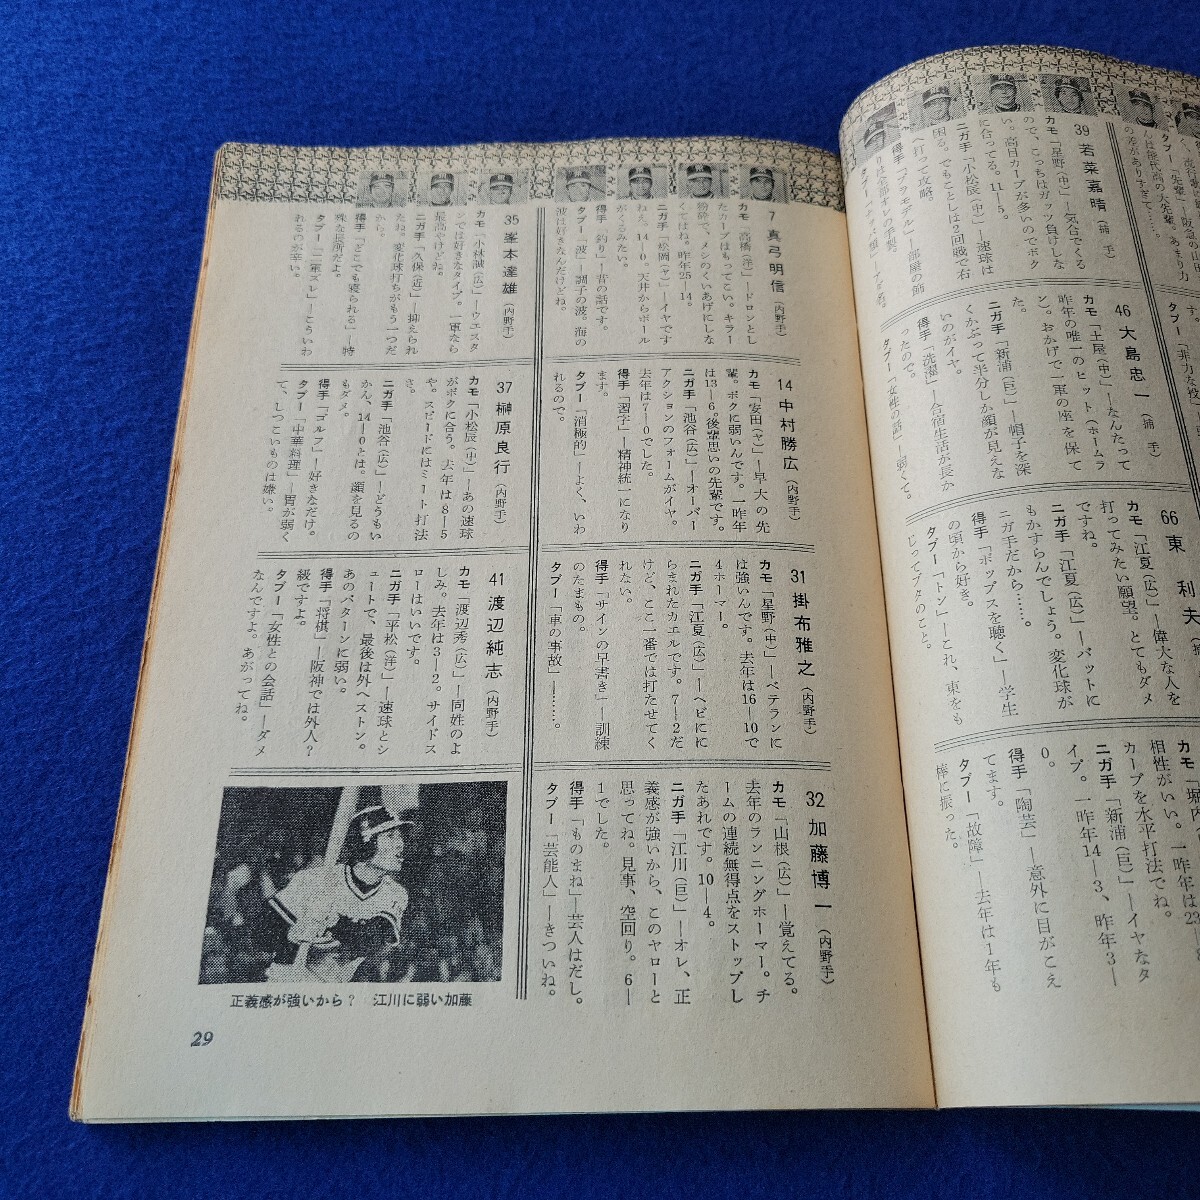 39 若菜嘉晴(捕手)
カモ「星野(中)」―気合でくる
ので、こっちはガッツ負けしな
い。高目カーブが多いのでボク
に合ってる。11―5。
ニガ手「小松辰(中)」―速球は
困る。でもことしは2回戦で右
へ打って攻略。
得手「プラモデル」―部屋の飾
りは全部オレの手製。
46 大島忠一(捕手)
カモ「土屋(中)」―なんたって
昨年の唯一のヒット(ホームラ
ン)。おかげで一軍の座を保て
た。
ニガ手「新浦(巨)」―帽子を深
くかぶって半分しか顔が見えな
いのがイヤ。
得手「洗濯」―合宿生活が長か
ったので。
タブー「女性の話」―弱くて。
66 東利夫
カモ「江夏(広)」―偉大な人を
打ってみたい願望。とてもダメ
ですね。
ニガ手「江夏(広)」―バットに
もかすらんでしょう。変化球が
ニガ手だから……。
得手「ポップスを聴く」―学生
の頃から好き。
タブー「トン」―これ、東をも
じってブタのこと。
相性がいい。一昨年は23―8
カーブを水平打法でね。
ニガ手「新浦(巨)」―イヤなタ
イプ。一昨年14―3、昨年3―
0。
得手「陶芸」―意外に目がこえ
てます。
タブー「故障」―去年は1年も
棒に振った。
7 真弓明信(内野手)
カモ「高橋(洋)」―ドロンとし
たカーブはもってこい。キラー
粉砕で、メシのくいあげにしな
くてはね。昨年25―14。
ニガ手「松岡(ヤ)」―イヤです
ねぇ。14―0。天井からボール
がくるみたい。
得手「釣り」―昔の話です。
タブー「波」―調子の波。海の
波は好きなんだけどね。
14 中村勝広(内野手)
カモ「安田(ヤ)」―早大の先
輩。ボクに弱いんです。一昨年
は13―6。後輩思いの先輩です。
ニガ手「池谷(広)」―オーバー
アクションのフォームがイヤ。
去年は7―0でした。
得手「習字」―精神統一になり
ます。
タブー「消極的」―よく、いわ
れるので。
31 掛布雅之(内野手)
カモ「星野(中)」―ベテランに
は強いんです。去年は16―10で
4ホーマー。
ニガ手「江夏(広)」―ヘビにに
らまれたカエルです。7―2だ
けど、ここ一番では打たせてく
れない。
得手「サインの早書き」―訓練
のたまもの。
タブー「車の事故」―……。
32 加藤博一(内野手)
カモ「山根(広)」―覚えてる。
去年のランニングホーマー。チ
ームの連続無得点をストップし
たあれです。10―4。
ニガ手「江川(巨)」―オレ、正
義感が強いから、このヤローと
思ってね。見事、空回り。6―
1でした。
得手「ものまね」―芸人はだし。
タブー「芸能人」―きついね。
35 峯本達雄(内野手)
カモ「小林誠(広)」―ウエスタ
ンでは好きなタイプ。一軍なら
最高やけどね。
ニガ手「久保(近)」―抑えられ
たね。変化球打ちがもう一つだ
から。
得手「どこでも寝られる」―特
殊な長所だよ。
タブー「二軍ズレ」―こういわ
れるのが辛い。
37 榊原良行(内野手)
カモ「小松辰(中)」―あの速球
がボクに合う。去年は8―5
や。スピードにはミート打法
さ。
ニガ手「池谷(広)」―どうもい
かん、14―0とは。顔を見るの
もダメ。
得手「ゴルフ」―好きなだけ。
タブー「中華料理」―胃が弱く
て、しつこいものは嫌い。
41 渡辺純志(内野手)
カモ「渡辺秀(広)」―同姓のよ
しみ。去年は3―2。サイドス
ローはいいです。
ニガ手「平松(洋)」―速球とシ
ュートで、最後は外へストン。
あのパターンに弱い。
得手「将棋」―阪神では外人?
級ですよ。
タブー「女性との会話」―ダメ
なんですよ。あがってね。
正義感が強いから? 江川に弱い加藤
29